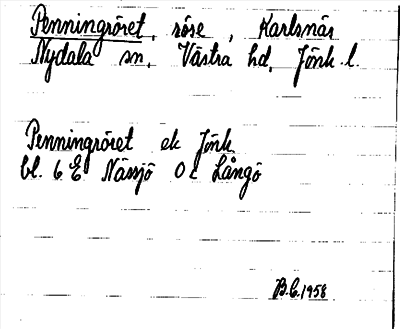 Penningröret, röse, Karlsnäs
Nydala sn. Västra hd. Jönk. l.
Penningröret ek Jönk.
bl. 6 E Nässjö Ok Långö
B.C. 1958